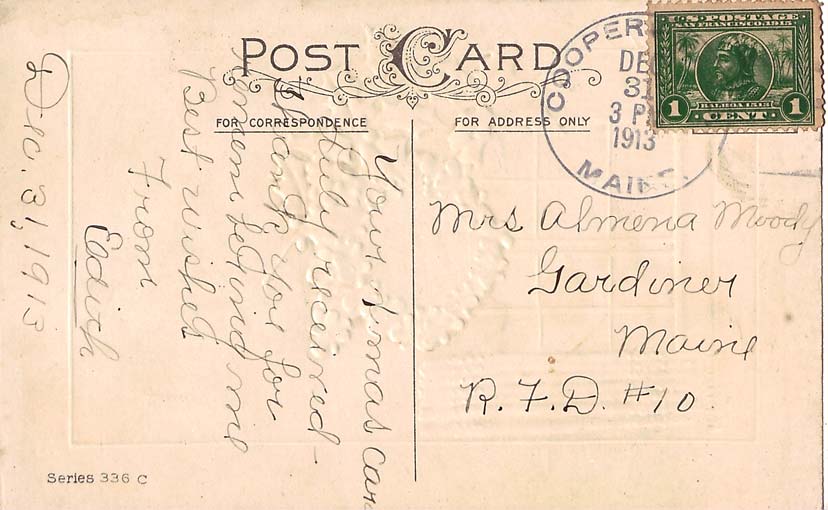 POST CARD
FOR CORRESPONDENCE
FOR ADDRESS ONLY
COOPER
DE
31
3 P
1913
MAINE
U.S. POSTAGE
SAN FRANCISCO 1915
BALBOA 1513
1 CENT 1
Mrs Almena Moody
Gardiner
Maine
R.F.D. #10
Your Xmas card
duly received -
thank you for
remembering me
Best wishes
From
Edith
Dec. 31, 1913
Series 336 C